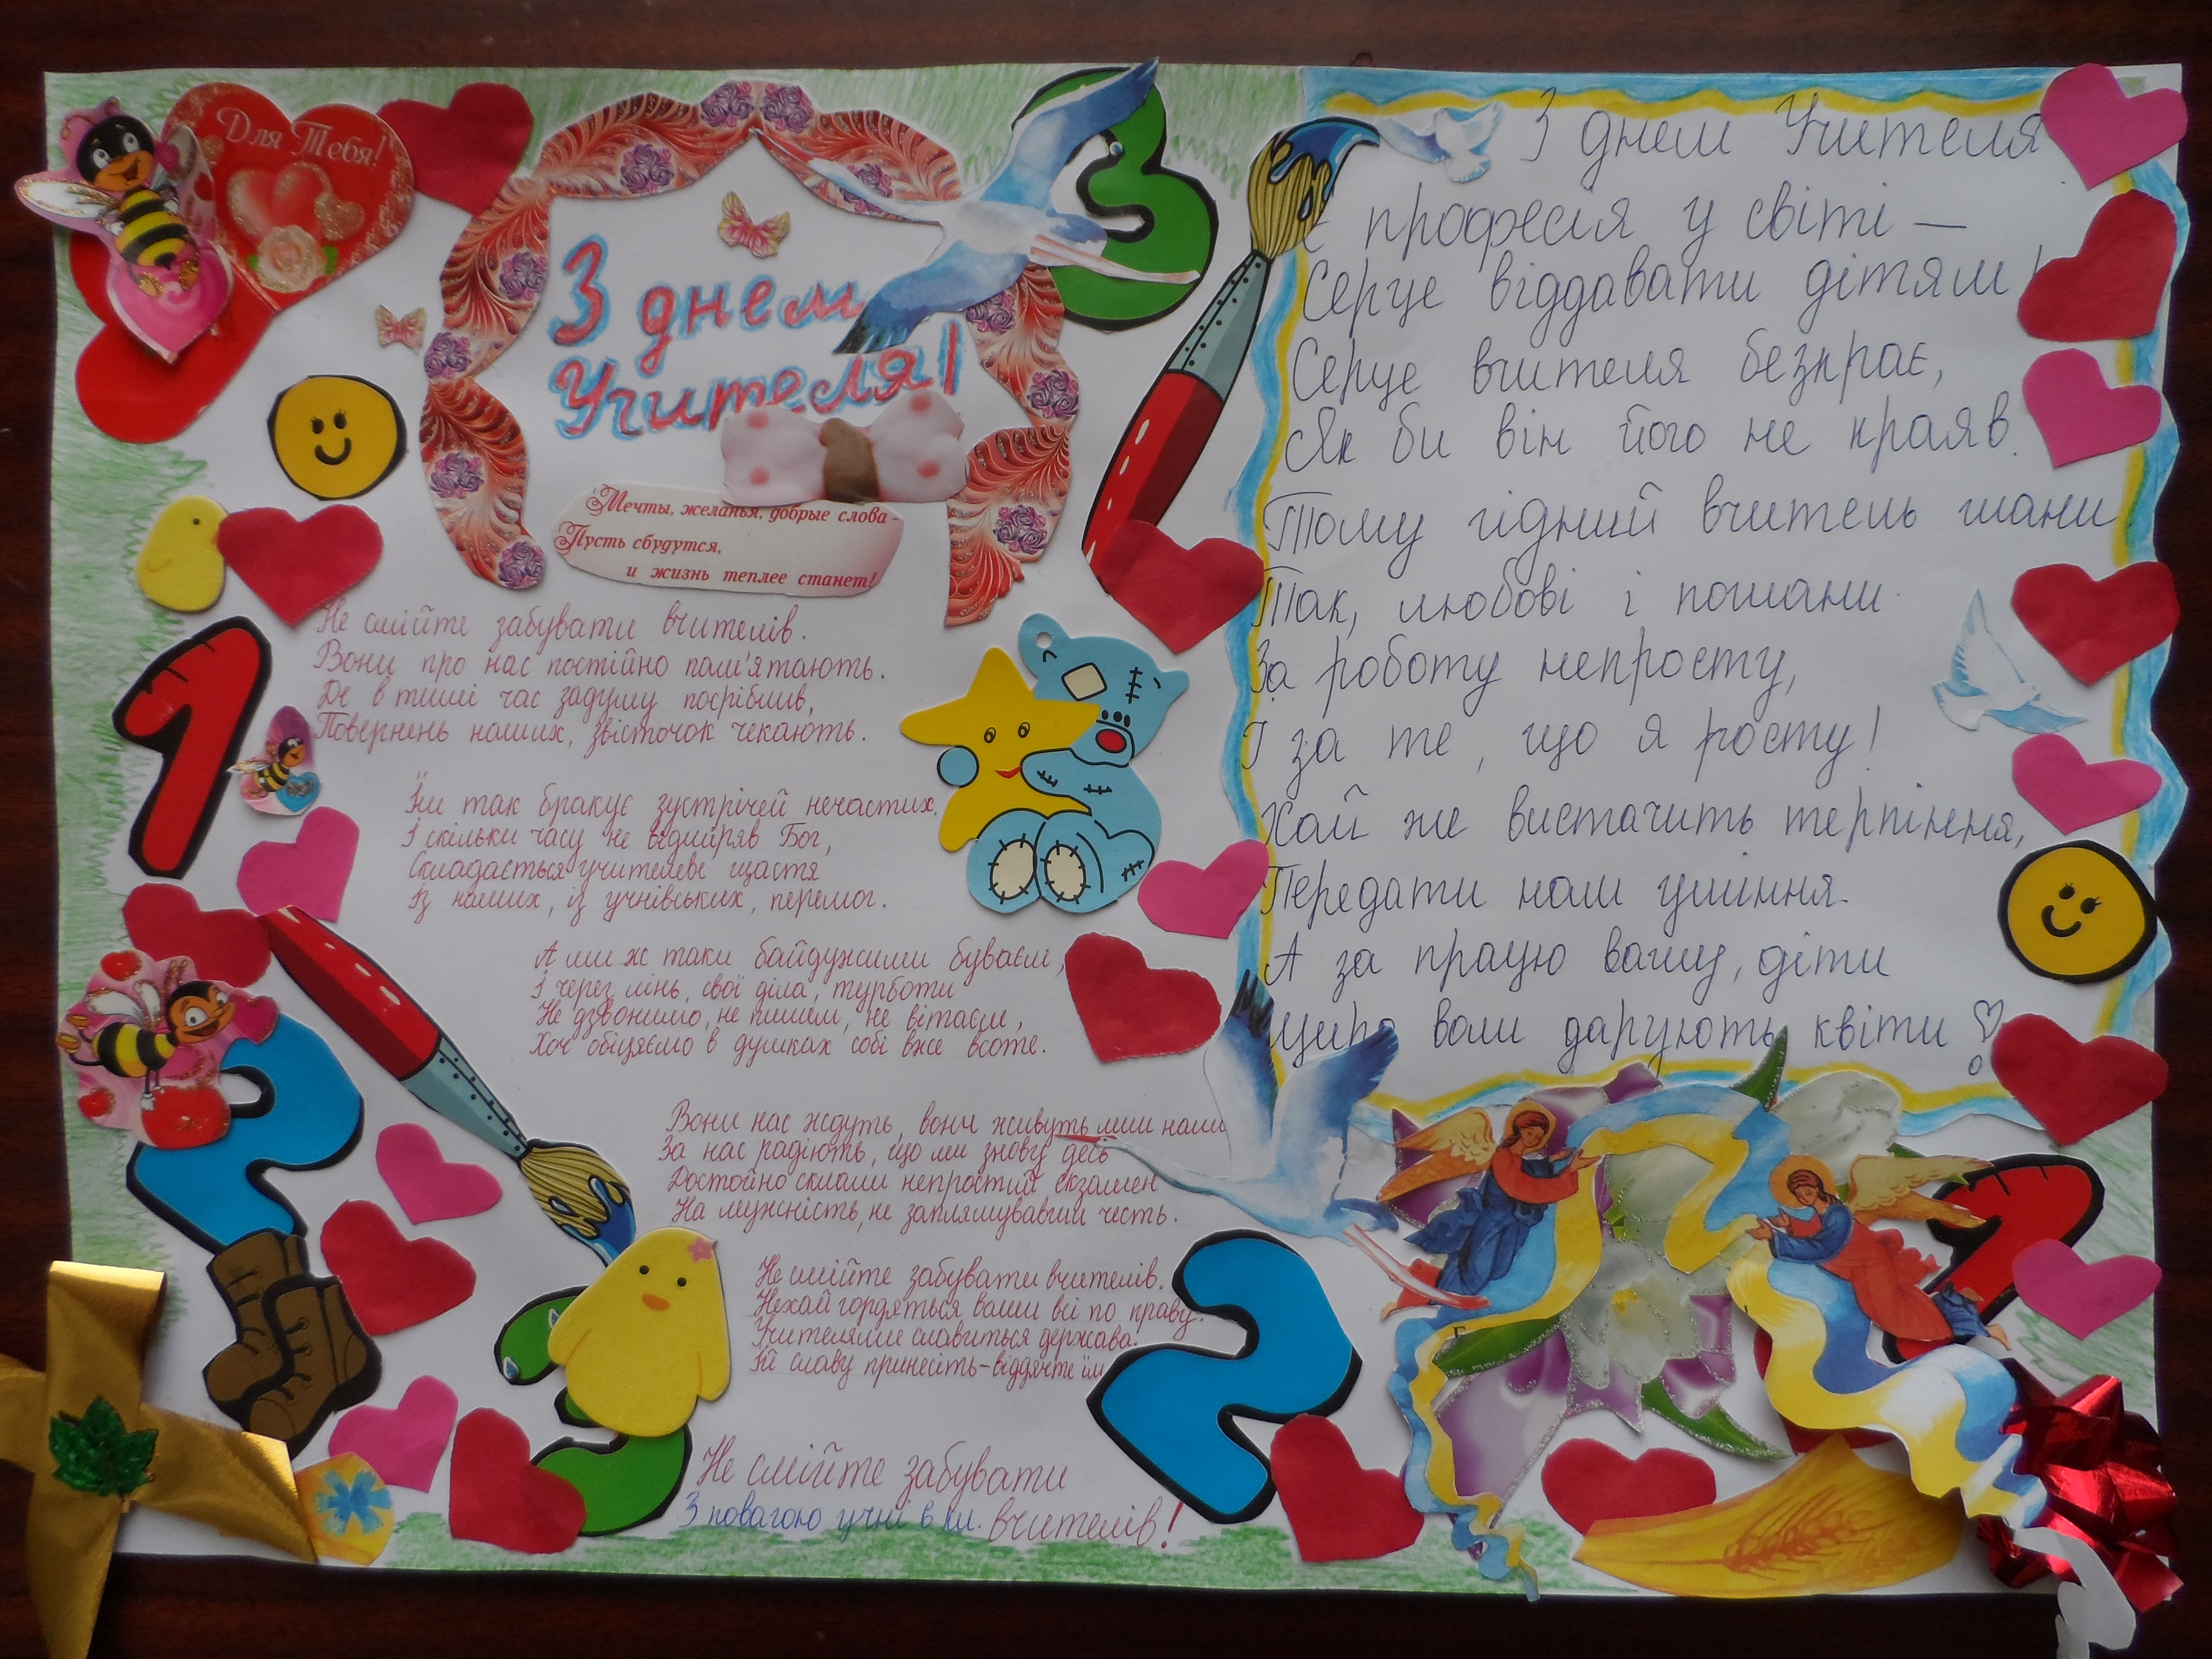 Для Тебя!
З днем
Учителя!
Мечты, желанья, добрые слова -
Пусть сбудутся,
и жизнь теплее станет!
Не смійте забувати вчителів.
Вони про нас постійно пам'ятають.
Де в тиші час задуму посрібнив,
Повернень наших, звісточок чекають.
Їм так бракує зустрічей нечастих.
І скільки часу не відміряв Бог,
Складається учителеве щастя
Із наших, із учнівських, перемог.
А ми ж таки байдужими буваєм,
І через лінь, свої діла, турботи
Не дзвонимо, не пишем, не вітаєм,
Хоч обіцяємо в думках собі вже всоте.
Вони нас ждуть, вони живуть лиш нами
За нас радіють, що ми знову десь
Достойно склали непростий екзамен
На мужність, не заплямувавши честь.
Не смійте забувати вчителів.
Нехай гордяться вами всі по праву.
Учителями славиться держава.
Їй славу принесіть-віддячте їм
Не смійте забувати
вчителів!
З повагою учні 8 кл.
З днем Учителя
Є професія у світі —
Серце віддавати дітям!
Серце вчителя безкрає,
Як би він його не краяв.
Тому гідний вчитель шани
Так, любові і пошани.
За роботу непросту,
І за те, що я росту!
Хай же вистачить терпіння,
Передати нам уміння.
А за працю вашу, діти
Щиро вам дарують квіти!